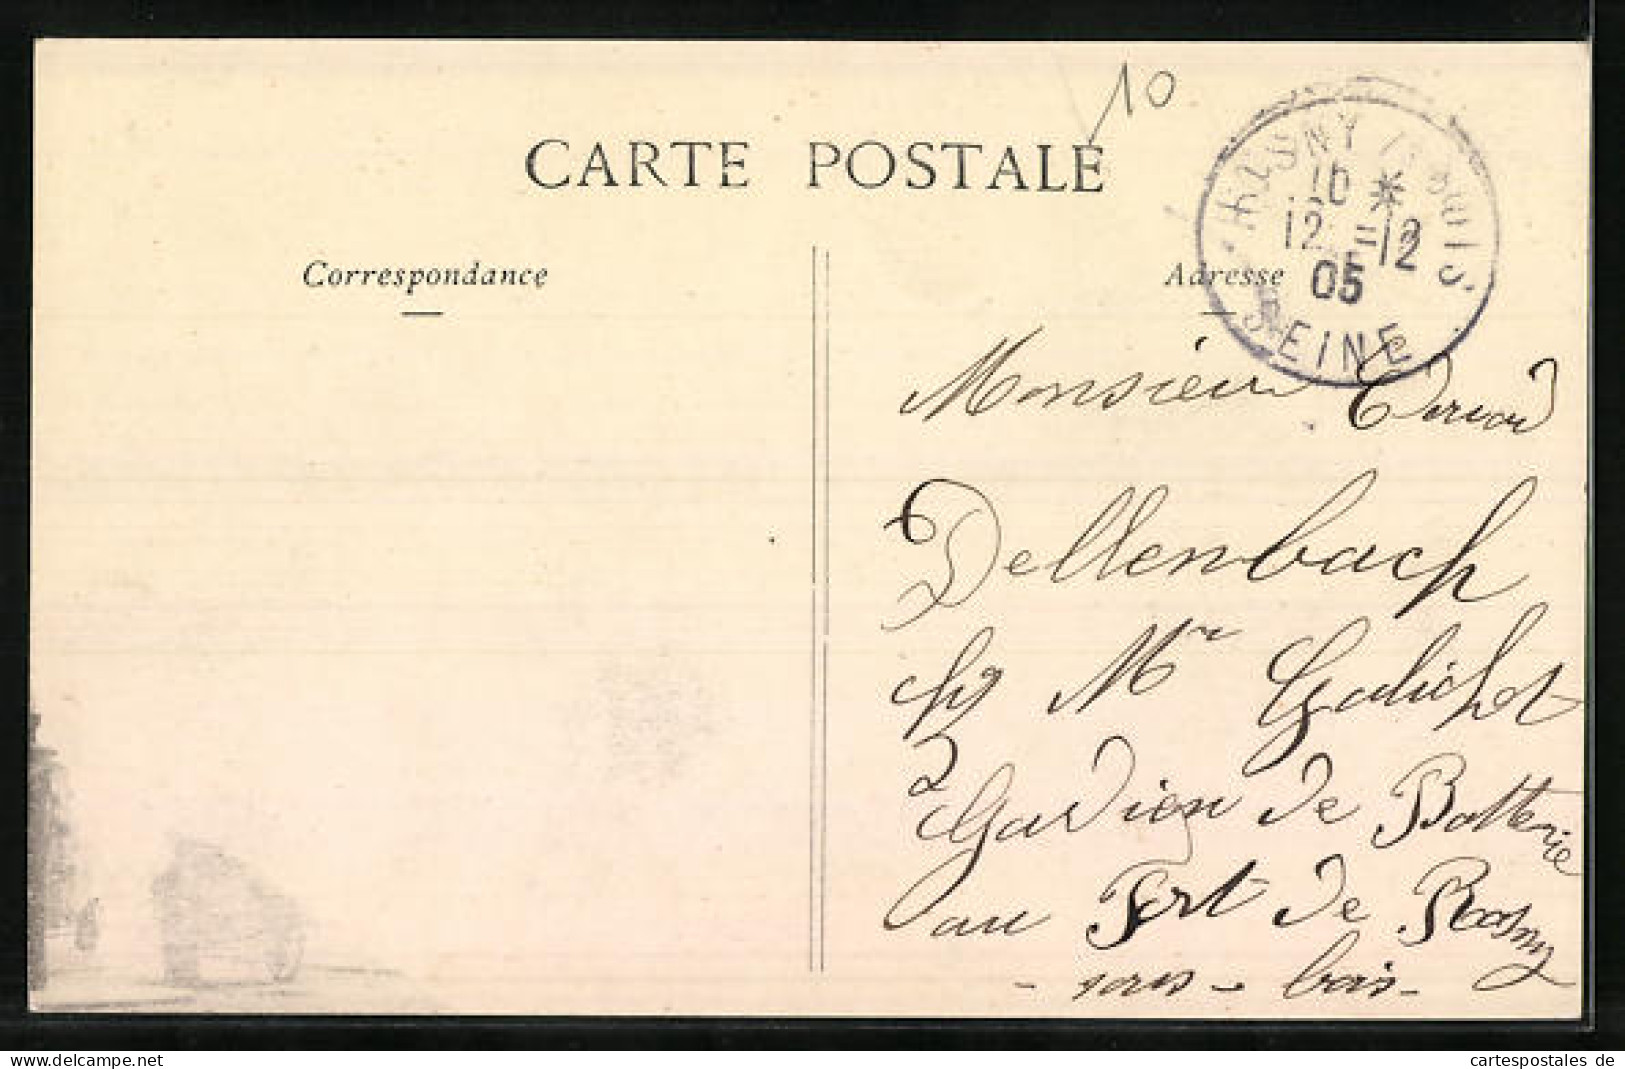 10
CARTE POSTALE
ROSNY S BOIS
10 *
12 =12
05
SEINE
Correspondance
Adresse
Monsieur
Dellenbach
chz Mr Galichet
Gardien de Batterie
au Fort de Rosny
- sous - bois -
cartespostales de